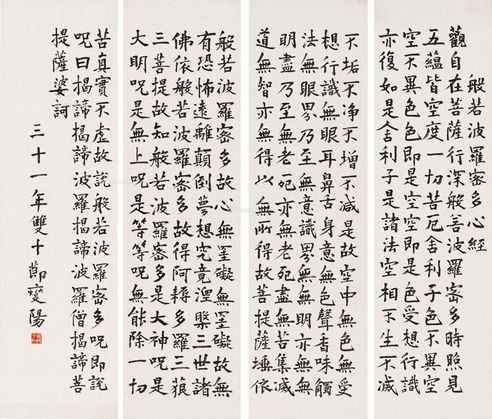 般若波羅密多心經
觀自在菩薩行深般若波羅密多時照見
五蘊皆空度一切苦厄舍利子色不異空
空不異色色即是空空即是色受想行識
亦復如是舍利子是諸法空相不生不滅
不垢不净不增不減是故空中無色無受
想行識無眼耳鼻舌身意無色聲香味觸
法無眼界乃至無意識界無無明亦無無
明盡乃至無老死亦無老死盡無苦集滅
道無智亦無得以無所得故菩提薩埵依
般若波羅密多故心無罣礙無罣礙故無
有恐怖遠離顛倒夢想究竟涅槃三世諸
佛依般若波羅密多故得阿耨多羅三藐
三菩提故知般若波羅密多是大神呪是
大明呪是無上呪是無等等呪能除一切
苦真實不虛故說般若波羅密多呪即說
呪曰揭諦揭諦波羅揭諦波羅僧揭諦菩
提薩婆訶
三十一年雙十節燮陽